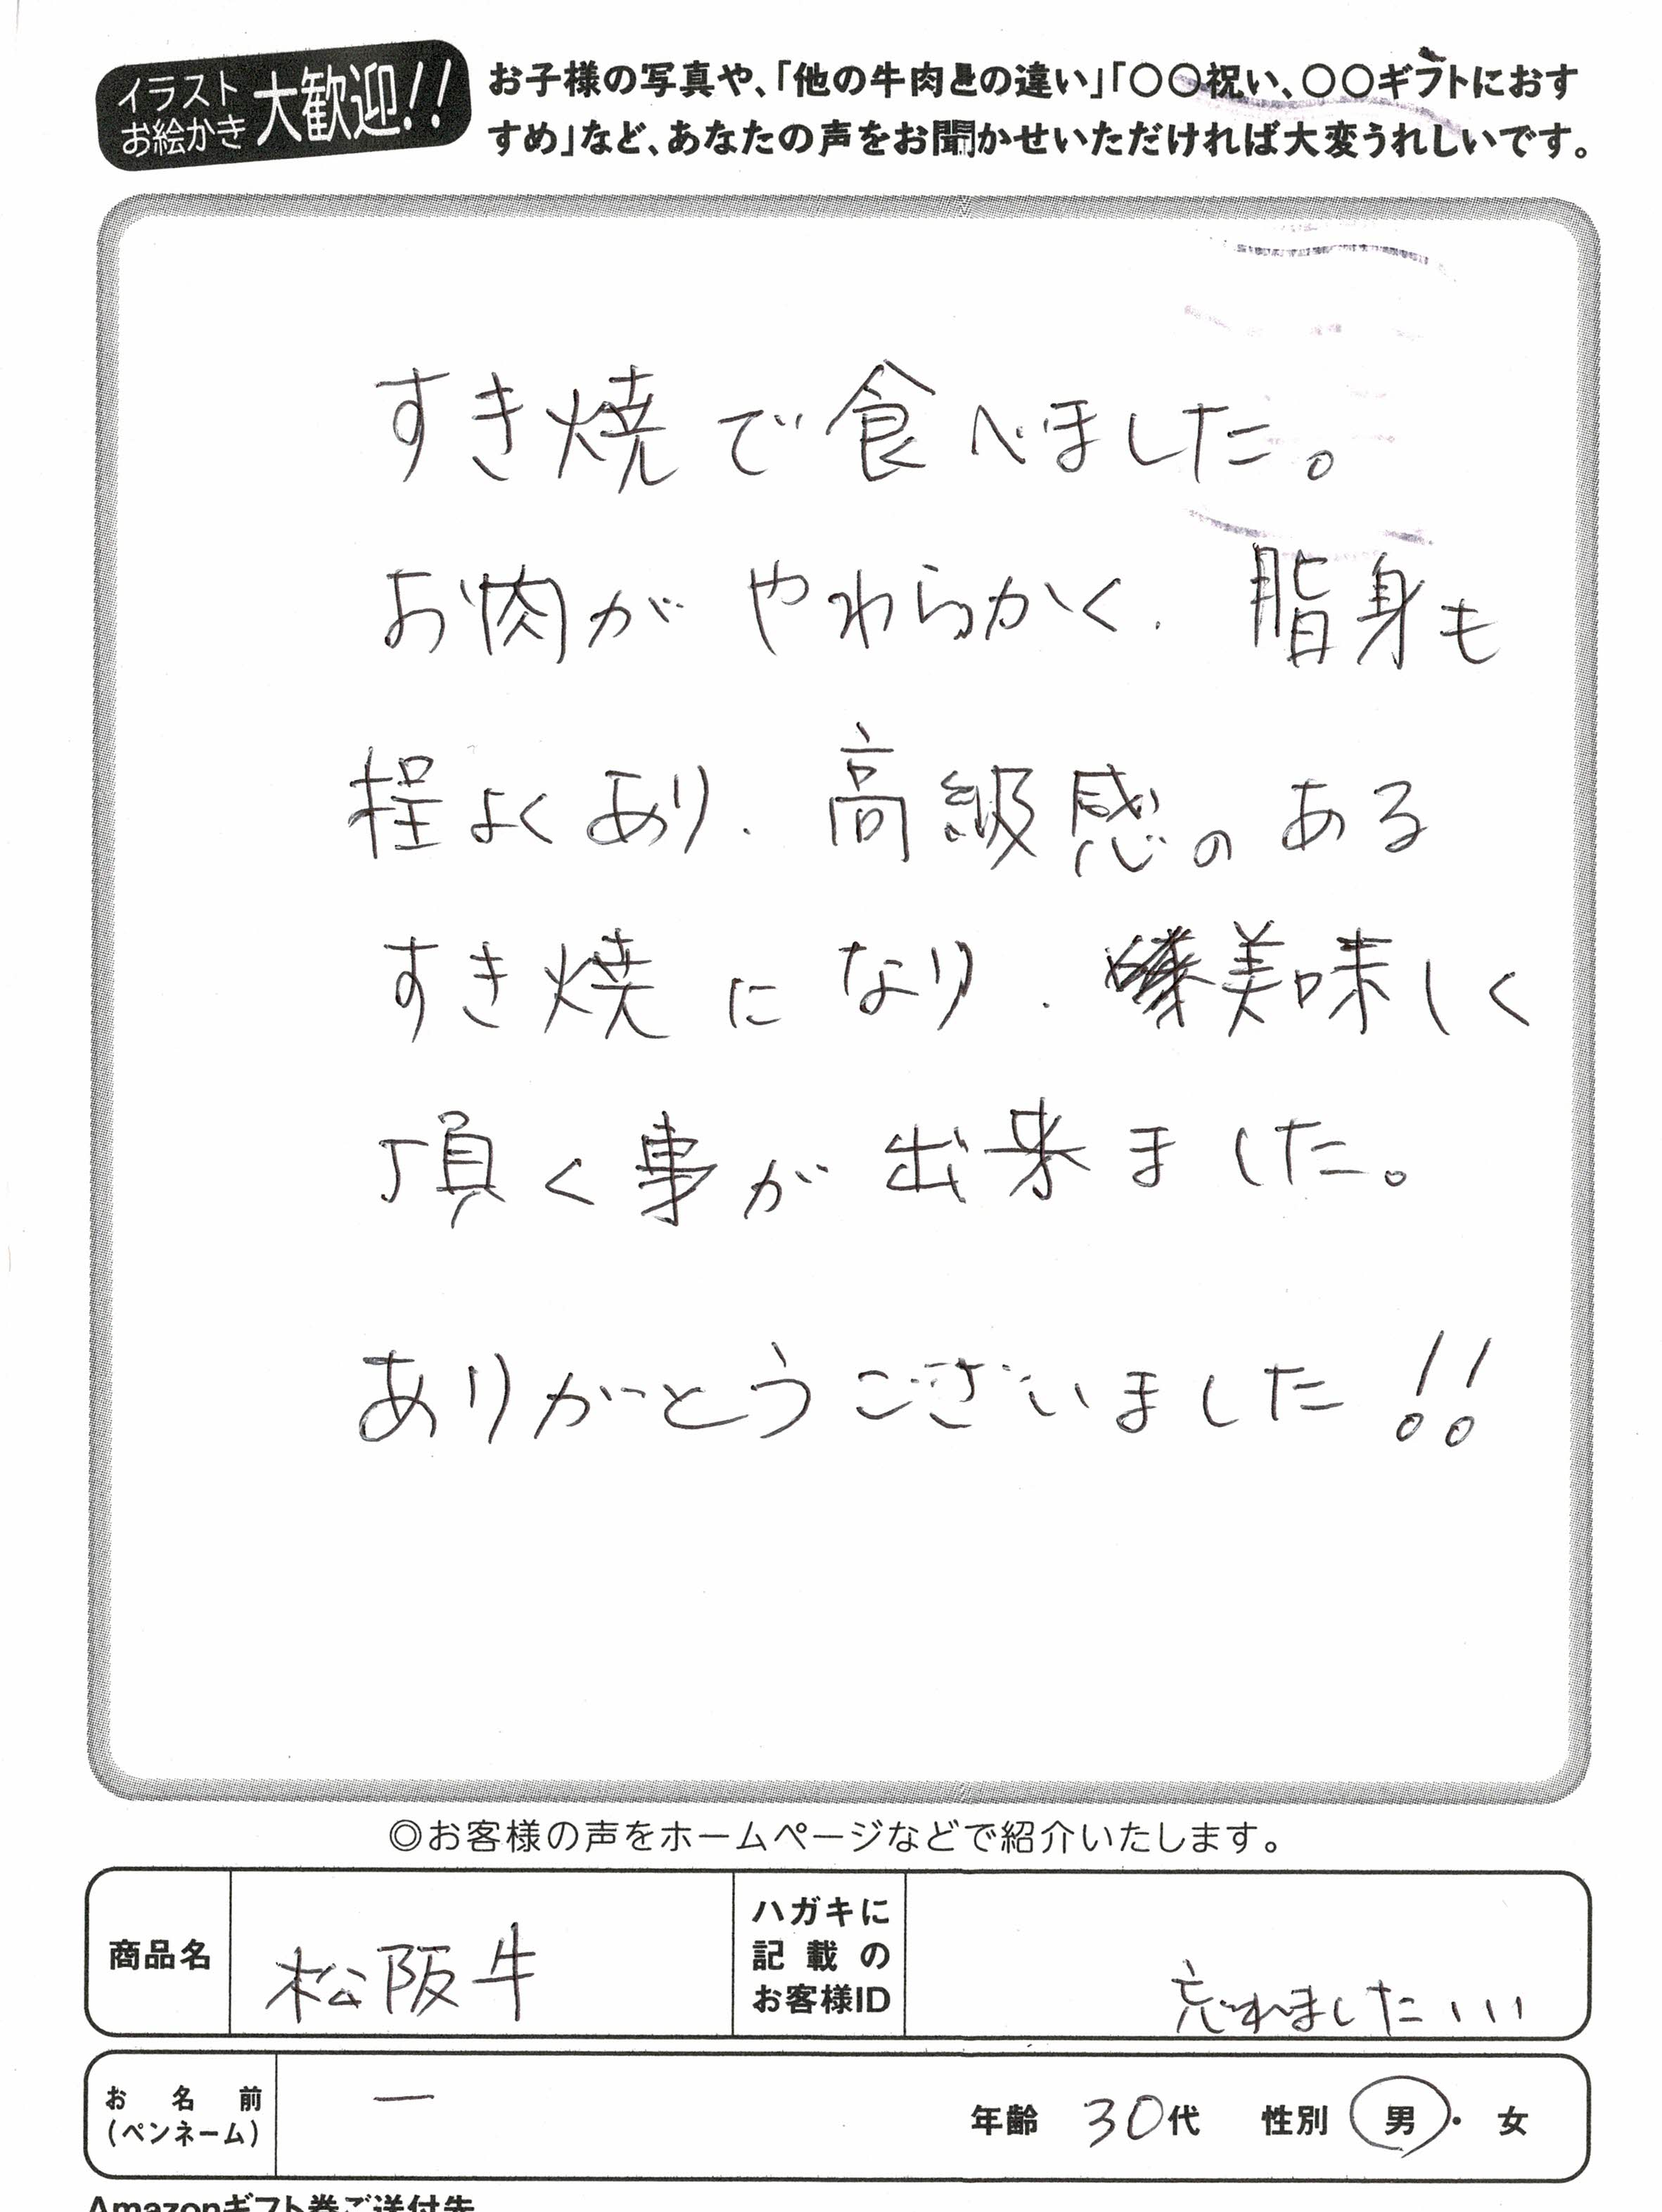 イラスト
お絵かき
大歓迎!!
お子様の写真や、「他の牛肉との違い」「〇〇祝い、〇〇ギフトにおす
すめ」など、あなたの声をお聞かせいただければ大変うれしいです。
すき焼で食べました。
お肉がやわらかく、脂身も
程よくあり、高級感のある
すき焼になり、美味しく
頂く事が出来ました。
ありがとうございました!!
◎お客様の声をホームページなどで紹介いたします。
商品名
松阪牛
ハガキに
記載の
お客様ID
忘れました、、、
お名前
(ペンネーム)
ー
年齢 30代 性別 男・女
Amazonギフト券ご送付先